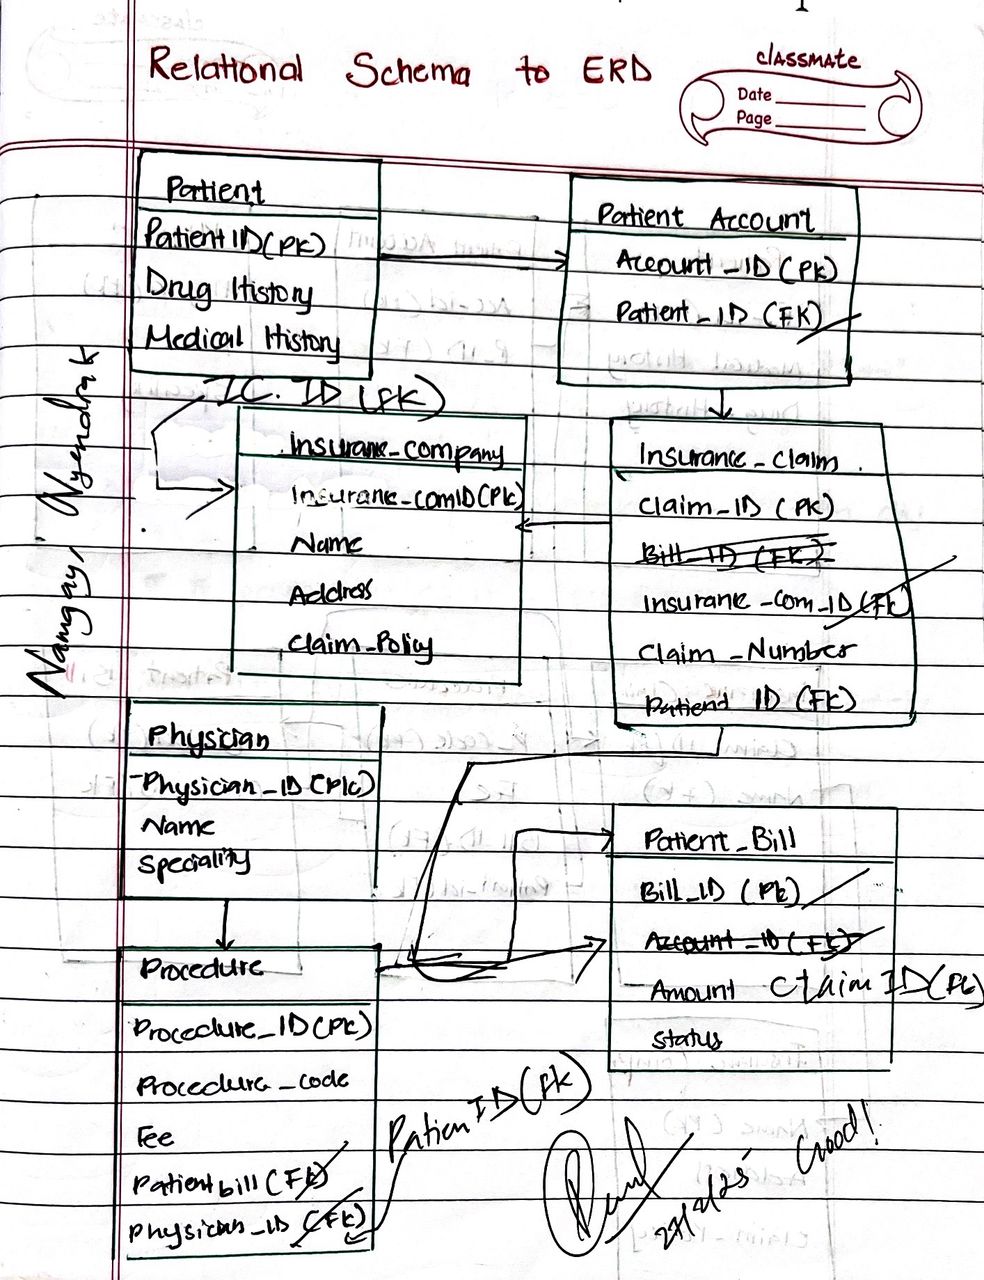 Relational Schema to ERD
classmate
Date
Page
Patient
Patient ID (PK)
Drug History
Medical History
Patient Account
Account_ID (PK)
Patient_ID (FK)
IC. ID (FK)
Insurane_company
Insurane_comID (PK)
Name
Address
Claim_Policy
Insurane_claim
Claim_ID (PK)
Bill_ID (FK)
Insurane_com_ID (FK)
Claim_Number
Patient ID (FK)
Namgay Nyendrak
Physician
Physician_ID (PK)
Name
Speciality
Patient_Bill
Bill_ID (PK)
Account_ID (FK)
Amount Claim ID (FK)
Status
Procedure
Procedure_ID (PK)
Procedura_code
Fee
Patient bill (FK)
Physician_ID (FK)
Patien ID (FK)
Good!